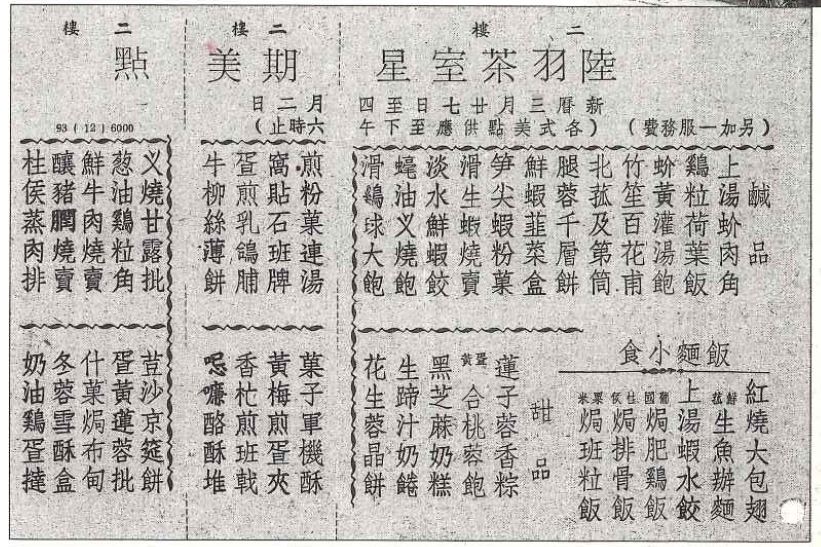 二樓
二樓
二樓
陸羽茶室星期美點
新曆三月廿七日至四月二日
(另加一服務費)
(各式美點供應至下午六時止)
93 ( 12 ) 6000
鹹品
上湯蚧肉角
鷄粒荷葉飯
蚧黃灌湯飽
竹笙百花甫
北菰及第筒
腿蓉千層餅
鮮蝦韮菜盒
笋尖蝦粉菓
滑生蝦燒賣
淡水鮮蝦餃
蠔油义燒飽
滑鷄球大飽
煎粉菓連湯
窩貼石班牌
蛋煎乳鴿脯
牛柳絲薄餅
义燒甘露批
葱油鷄粒角
鮮牛肉燒賣
釀豬膶燒賣
柱侯蒸肉排
飯麵小食
紅燒大包翅
鮮菰生魚辦麵
上湯蝦水餃
葡國焗肥鷄飯
柱侯焗排骨飯
粟米焗班粒飯
甜品
蓮子蓉香粽
蛋黃合桃蓉飽
黑芝麻奶糕
生蹄汁奶
花生蓉晶餅
菓子軍機酥
黃梅煎蛋夾
香杧煎班戟
酪酥堆
荳沙京筵餅
蛋黃蓮蓉批
什菓焗布甸
冬蓉雪酥盒
奶油鷄蛋撻